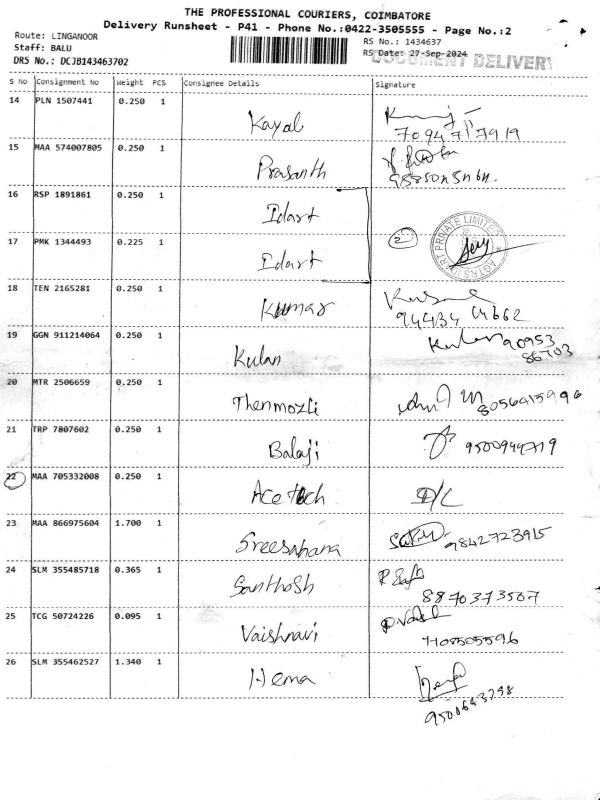 THE PROFESSIONAL COURIERS, COIMBATORE
Delivery Runsheet - P41 - Phone No.:0422-3505555 - Page No.:2
Route: LINGANOOR
Staff: BALU
DRS No.: DCJB143463702
RS No.: 1434637
RS Date: 27-Sep-2024
DOCUMENT DELIVERY
S No Consignment No Weight PCS Consignee Details Signature
14 PLN 1507441 0.250 1 Kayal
7094717919
15 MAA 574007805 0.250 1 Prasanth
16 RSP 1891861 0.250 1 Idart
17 PMK 1344493 0.225 1 Idart 2
PRIVATE LIMITED
18 TEN 2165281 0.250 1 Kumar
94434 14662
19 GGN 911214064 0.250 1 Kulan Kulan 90953
86703
20 MTR 2506659 0.250 1 Thenmozli 8056415996
21 TRP 7807602 0.250 1 Balaji 9500944719
22 MAA 705332008 0.250 1 Ace tech D/C
23 MAA 866975604 1.700 1 Sreesahana 9842723915
24 SLM 355485718 0.365 1 Santhosh
8870373507
25 TCG 50724226 0.095 1 Vaishnavi
26 SLM 355462527 1.340 1 Hema
9500643798